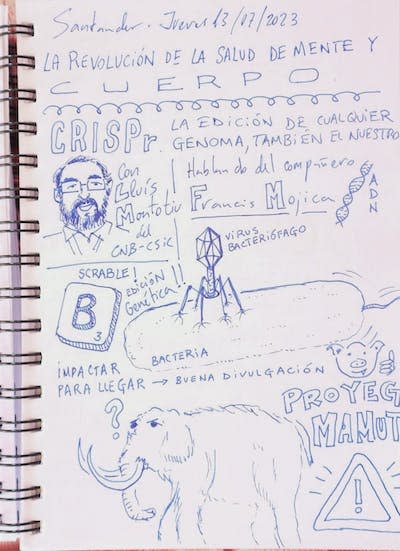 Santander. Jueves 13/07/2023
LA REVOLUCIÓN DE LA SALUD DE MENTE Y
CUERPO
CRISPr.
LA EDICIÓN DE CUALQUIER
GENOMA, TAMBIÉN EL NUESTRO
Con
Lluís
Montoliu
del
CNB-CSIC
Hablando del compañero
Francis Mojica
ADN
VIRUS
BACTERIÓFAGO
SCRABLE!
EDICIÓN
Genética!!
B
3
BACTERIA
IMPACTAR
PARA LLEGAR → BUENA DIVULGACIÓN
PROYECT
MAMUT
?
!